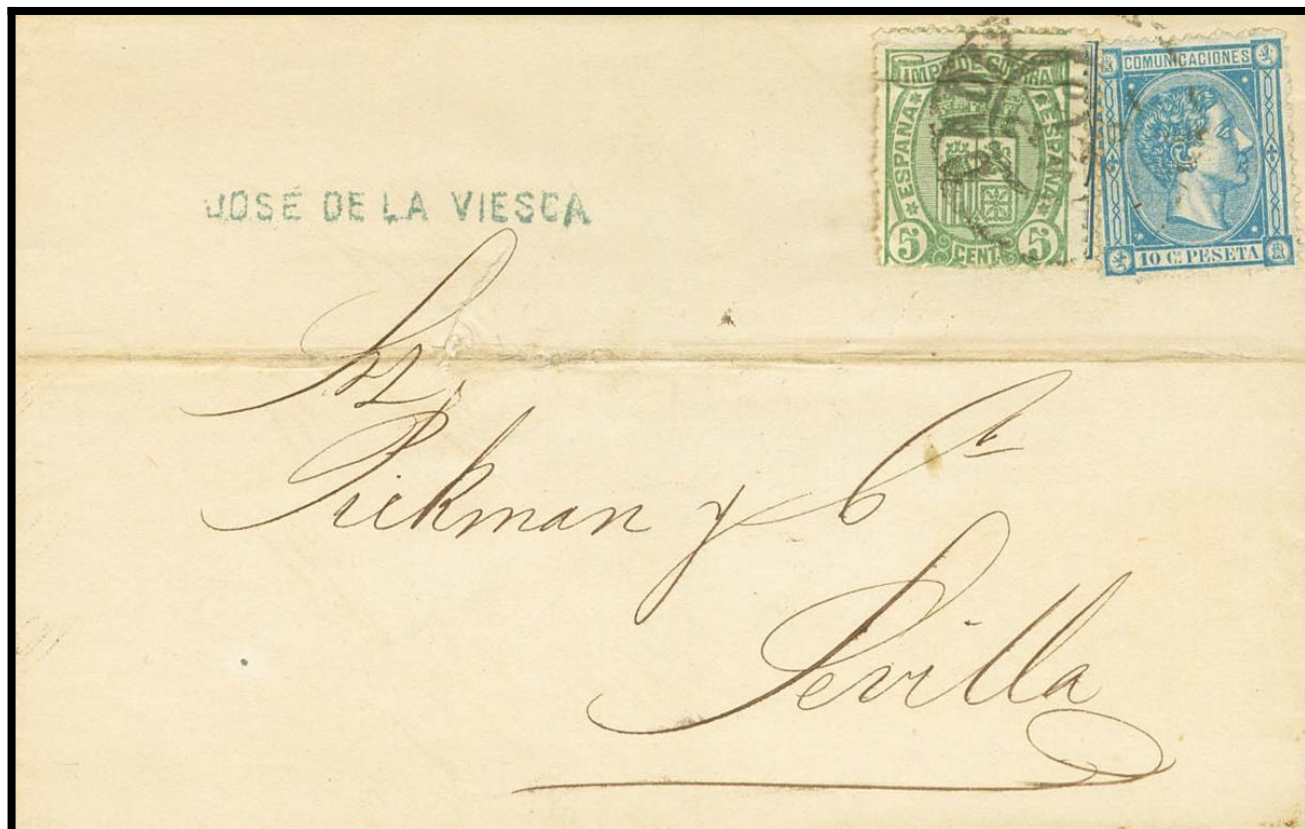 IMPTO DE GUERRA
ESPAÑA
ESPAÑA
5 CENT. 5
COMUNICACIONES
10 Cs PESETA
JOSÉ DE LA VIESCA
Sres
Pickman y Ca
Sevilla